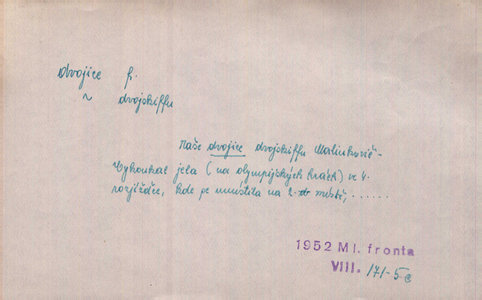 dvojice f.
~ dvojskiffu
Naše dvojice dvojskiffu Malinkovič-
Vykoukal jela (na olympijských hrách) ve 4.
rozjížďce, kde se umístila na 2. místě, ......
1952 Ml. fronta
VIII. 171-5c